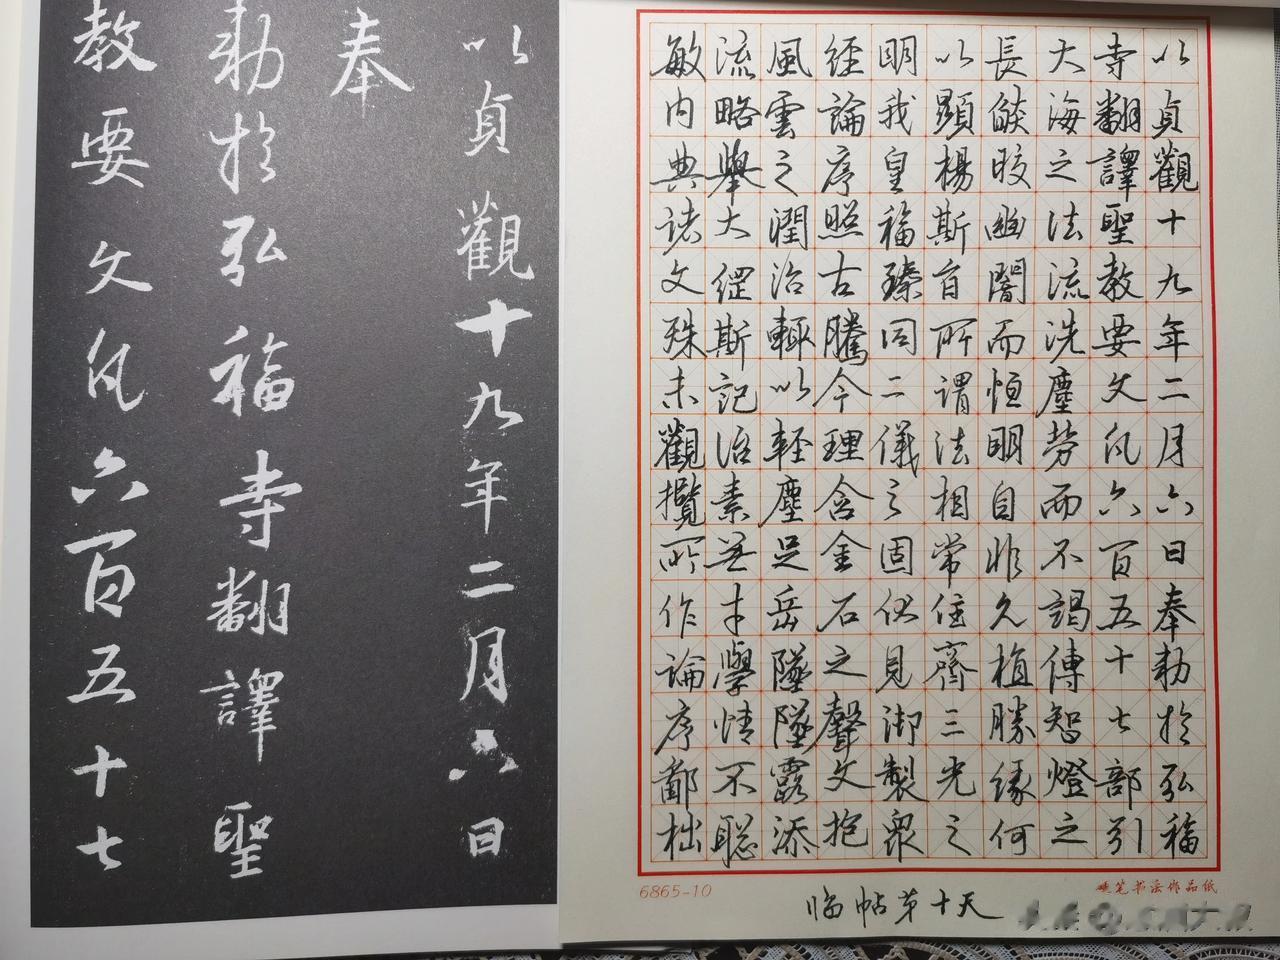 以貞觀十九年二月六日
奉
勅於弘福寺翻譯聖
教要文凡六百五十七
以貞觀十九年二月六日奉勅於弘福
寺翻譯聖教要文凡六百五十七部引
大海之法流洗塵勞而不竭傳智燈之
長燄皎幽闇而恒明自非久植勝緣何
以顯楊斯旨所謂法相常住齊三光之
明我皇福臻同二儀之固伏見御製衆
經論序照古騰今理含金石之聲文抱
風雲之潤治輒以輕塵足岳墜墜露添
流略舉大綱斯記治素無才學情不聰
敏内典諸文殊未觀攬所作論序鄙拙
6865-10
硬笔书法作品纸
临帖第十天